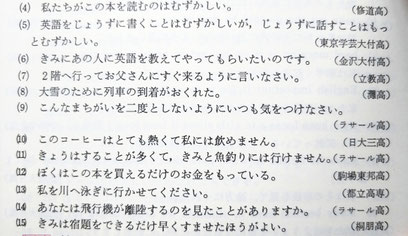 (4) 私たちがこの本を読むのはむずかしい。 (修道高)
(5) 英語をじょうずに書くことはむずかしいが，じょうずに話すことはもっ
とむずかしい。 (東京学芸大付高)
(6) きみにあの人に英語を教えてやってもらいたいのです。 (金沢大付高)
(7) 2階へ行ってお父さんにすぐ来るように言いなさい。 (立教高)
(8) 大雪のために列車の到着がおくれた。 (灘高)
(9) こんなまちがいを二度としないようにいつも気をつけなさい。
(ラサール高)
(10) このコーヒーはとても熱くて私には飲めません。 (日大三高)
(11) きょうはすることが多くて，きみと魚釣りには行けません。(ラサール高)
(12) ぼくはこの本を買えるだけのお金をもっている。 (駒場東邦高)
(13) 私を川へ泳ぎに行かせてください。 (都立高専)
(14) あなたは飛行機が離陸するのを見たことがありますか。 (ラサール高)
(15) きみは宿題をできるだけ早くすませたほうがよい。 (桐朋高)